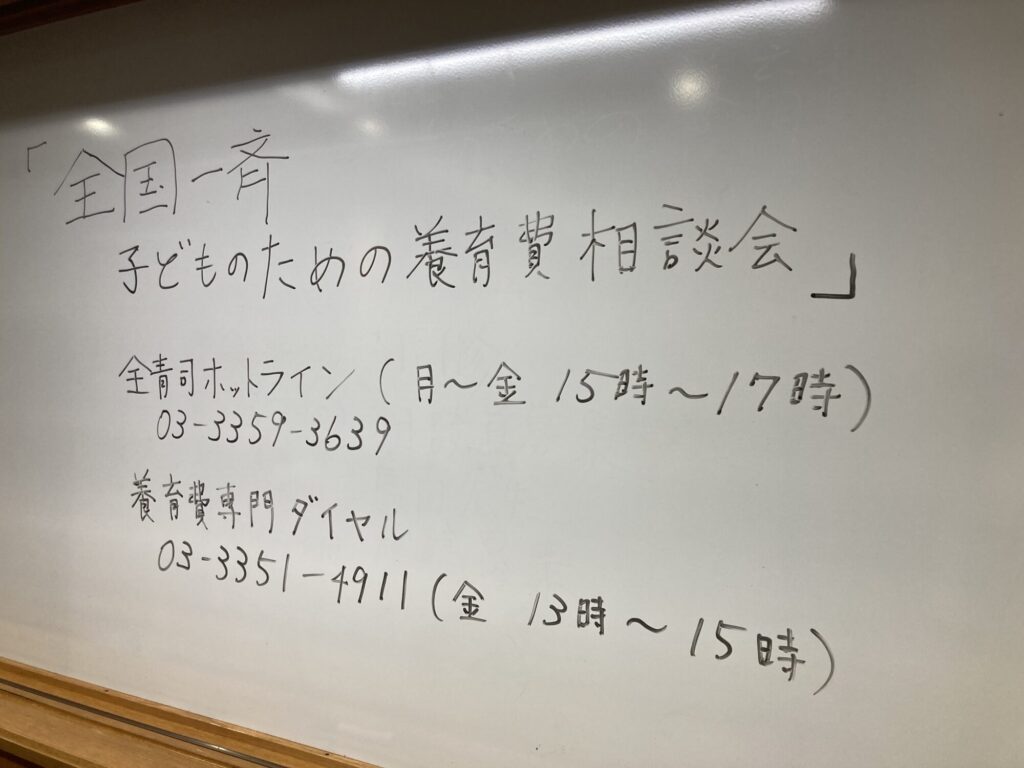 「全国一斉
子どものための養育費相談会」
全青司ホットライン(月〜金 15時〜17時)
03-3359-3639
養育費専門ダイヤル
03-3351-4911(金 13時〜15時)